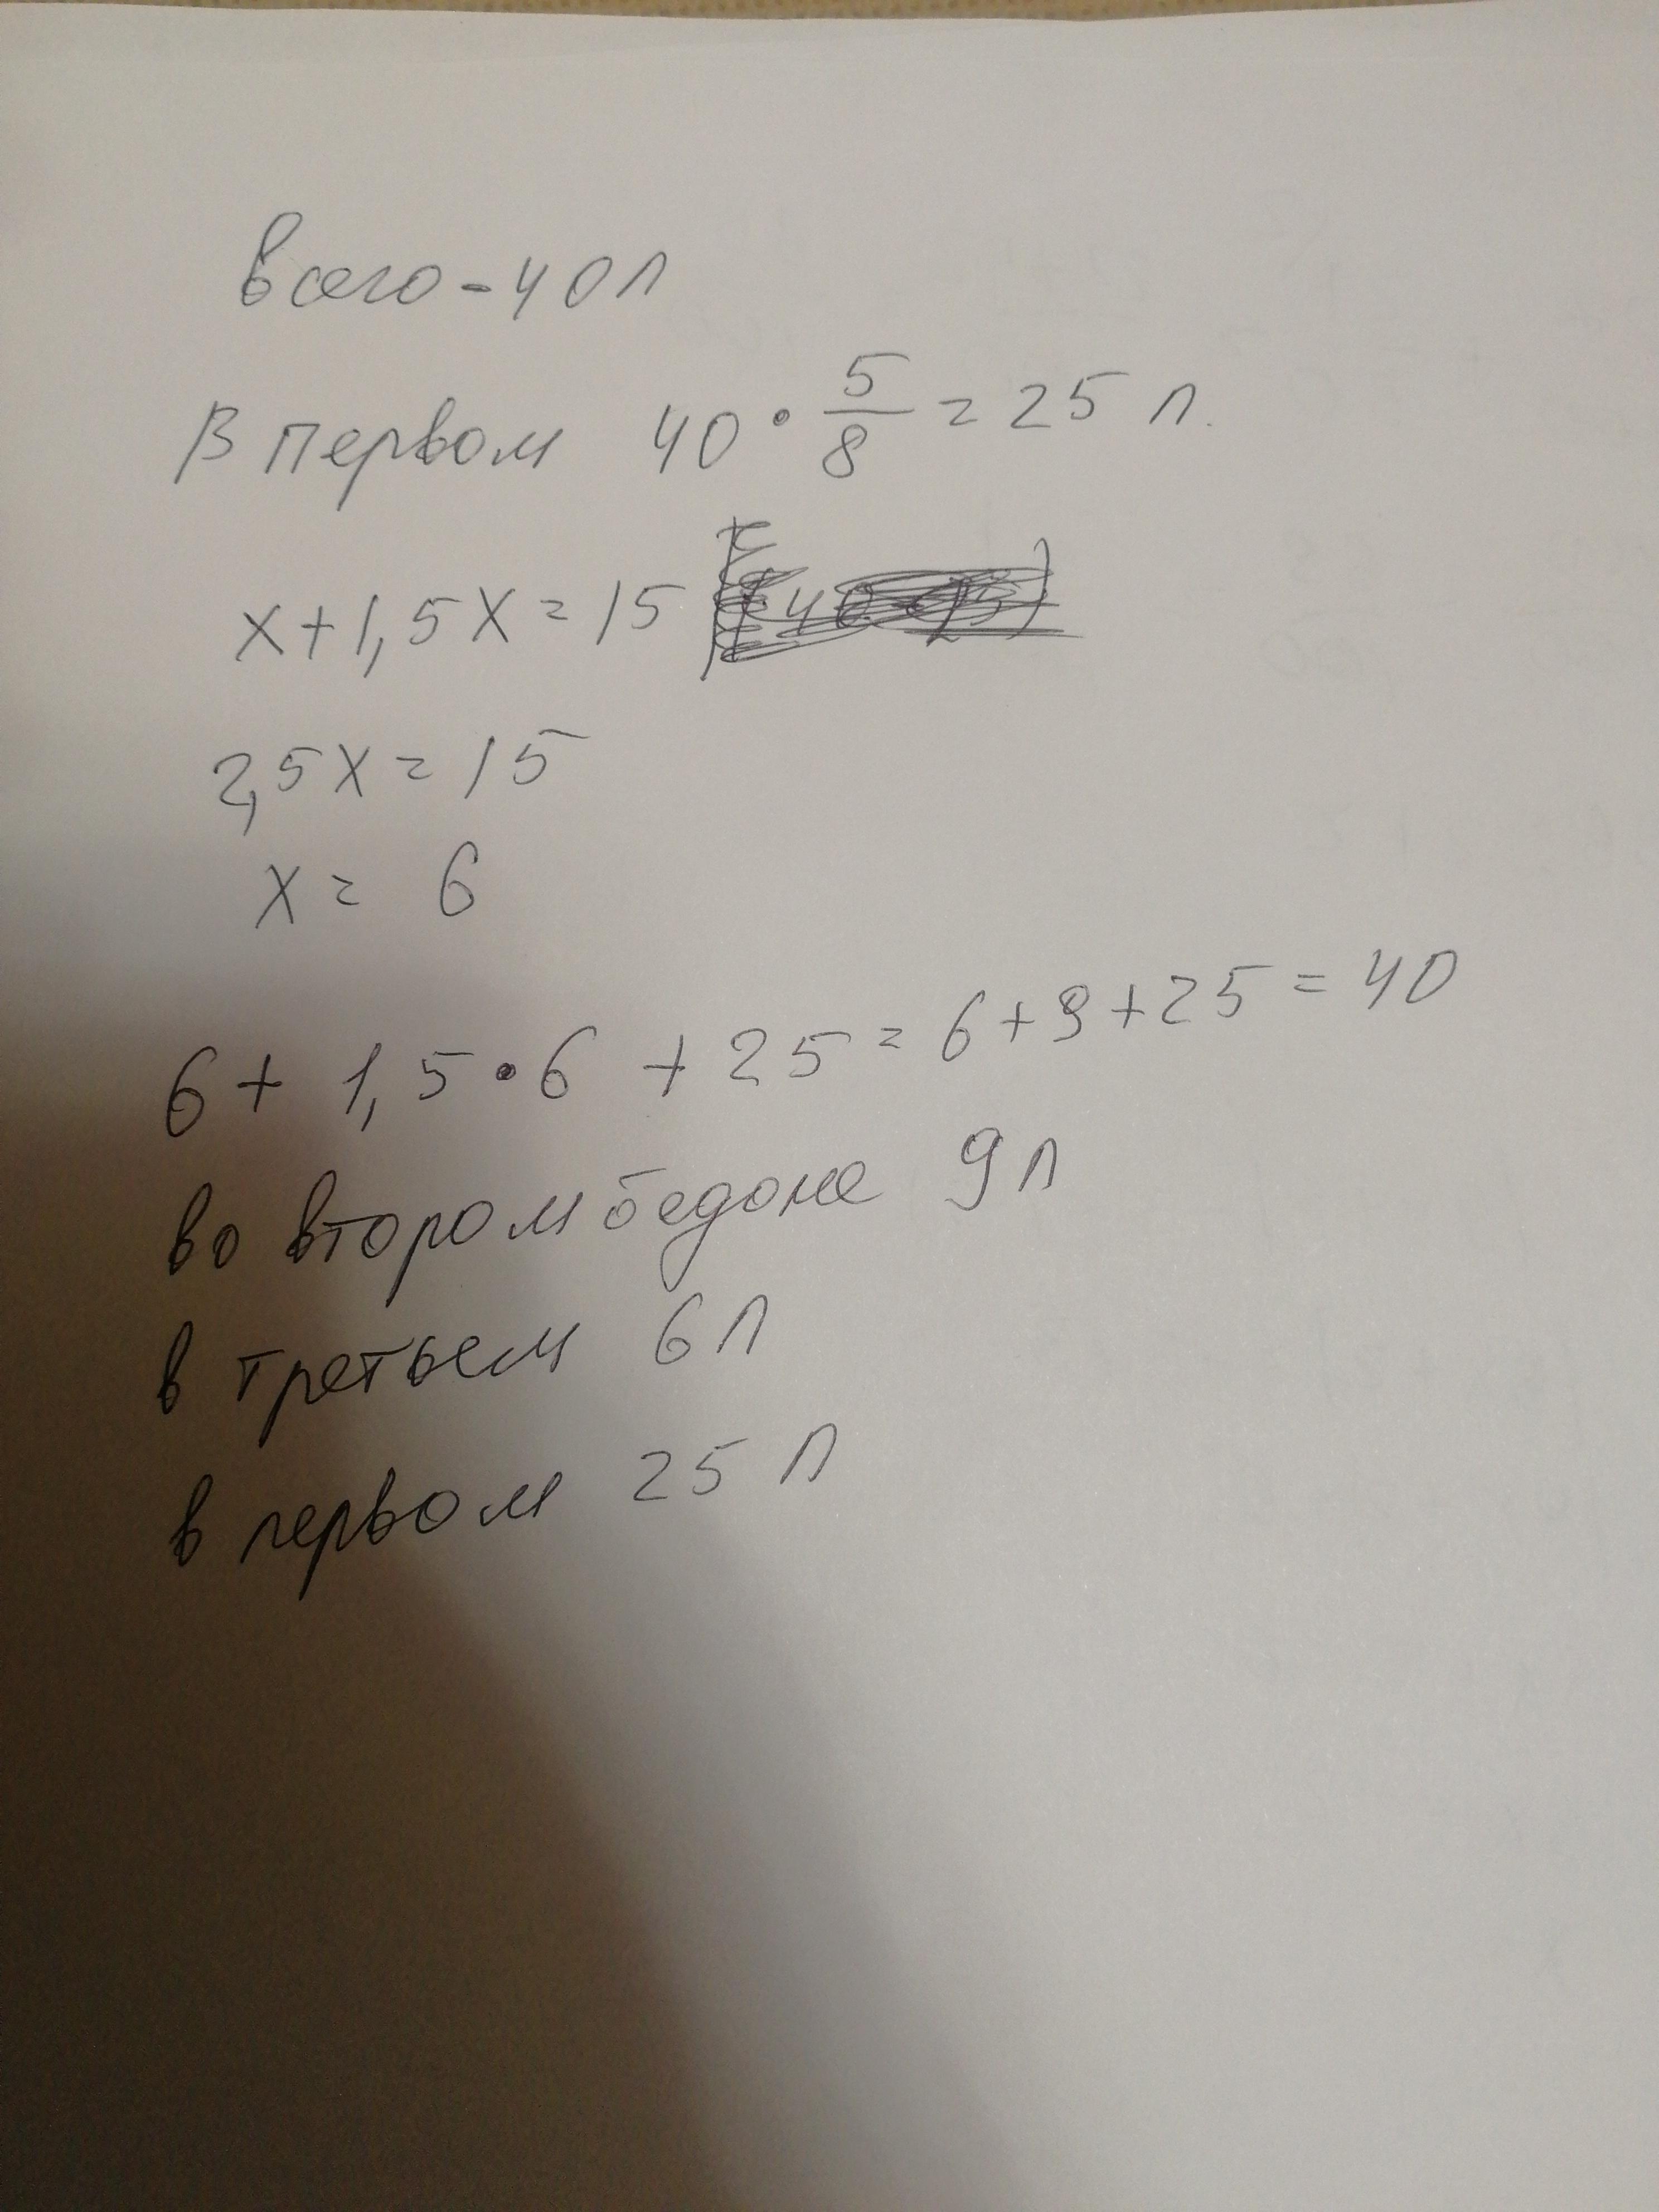 Всего - 40 л
В первом 40 · 5/8 = 25 л.
x + 1,5x = 15
2,5x = 15
x = 6
6 + 1,5 · 6 + 25 = 6 + 9 + 25 = 40
во втором бедоне 9 л
в третьем 6 л
в первом 25 л